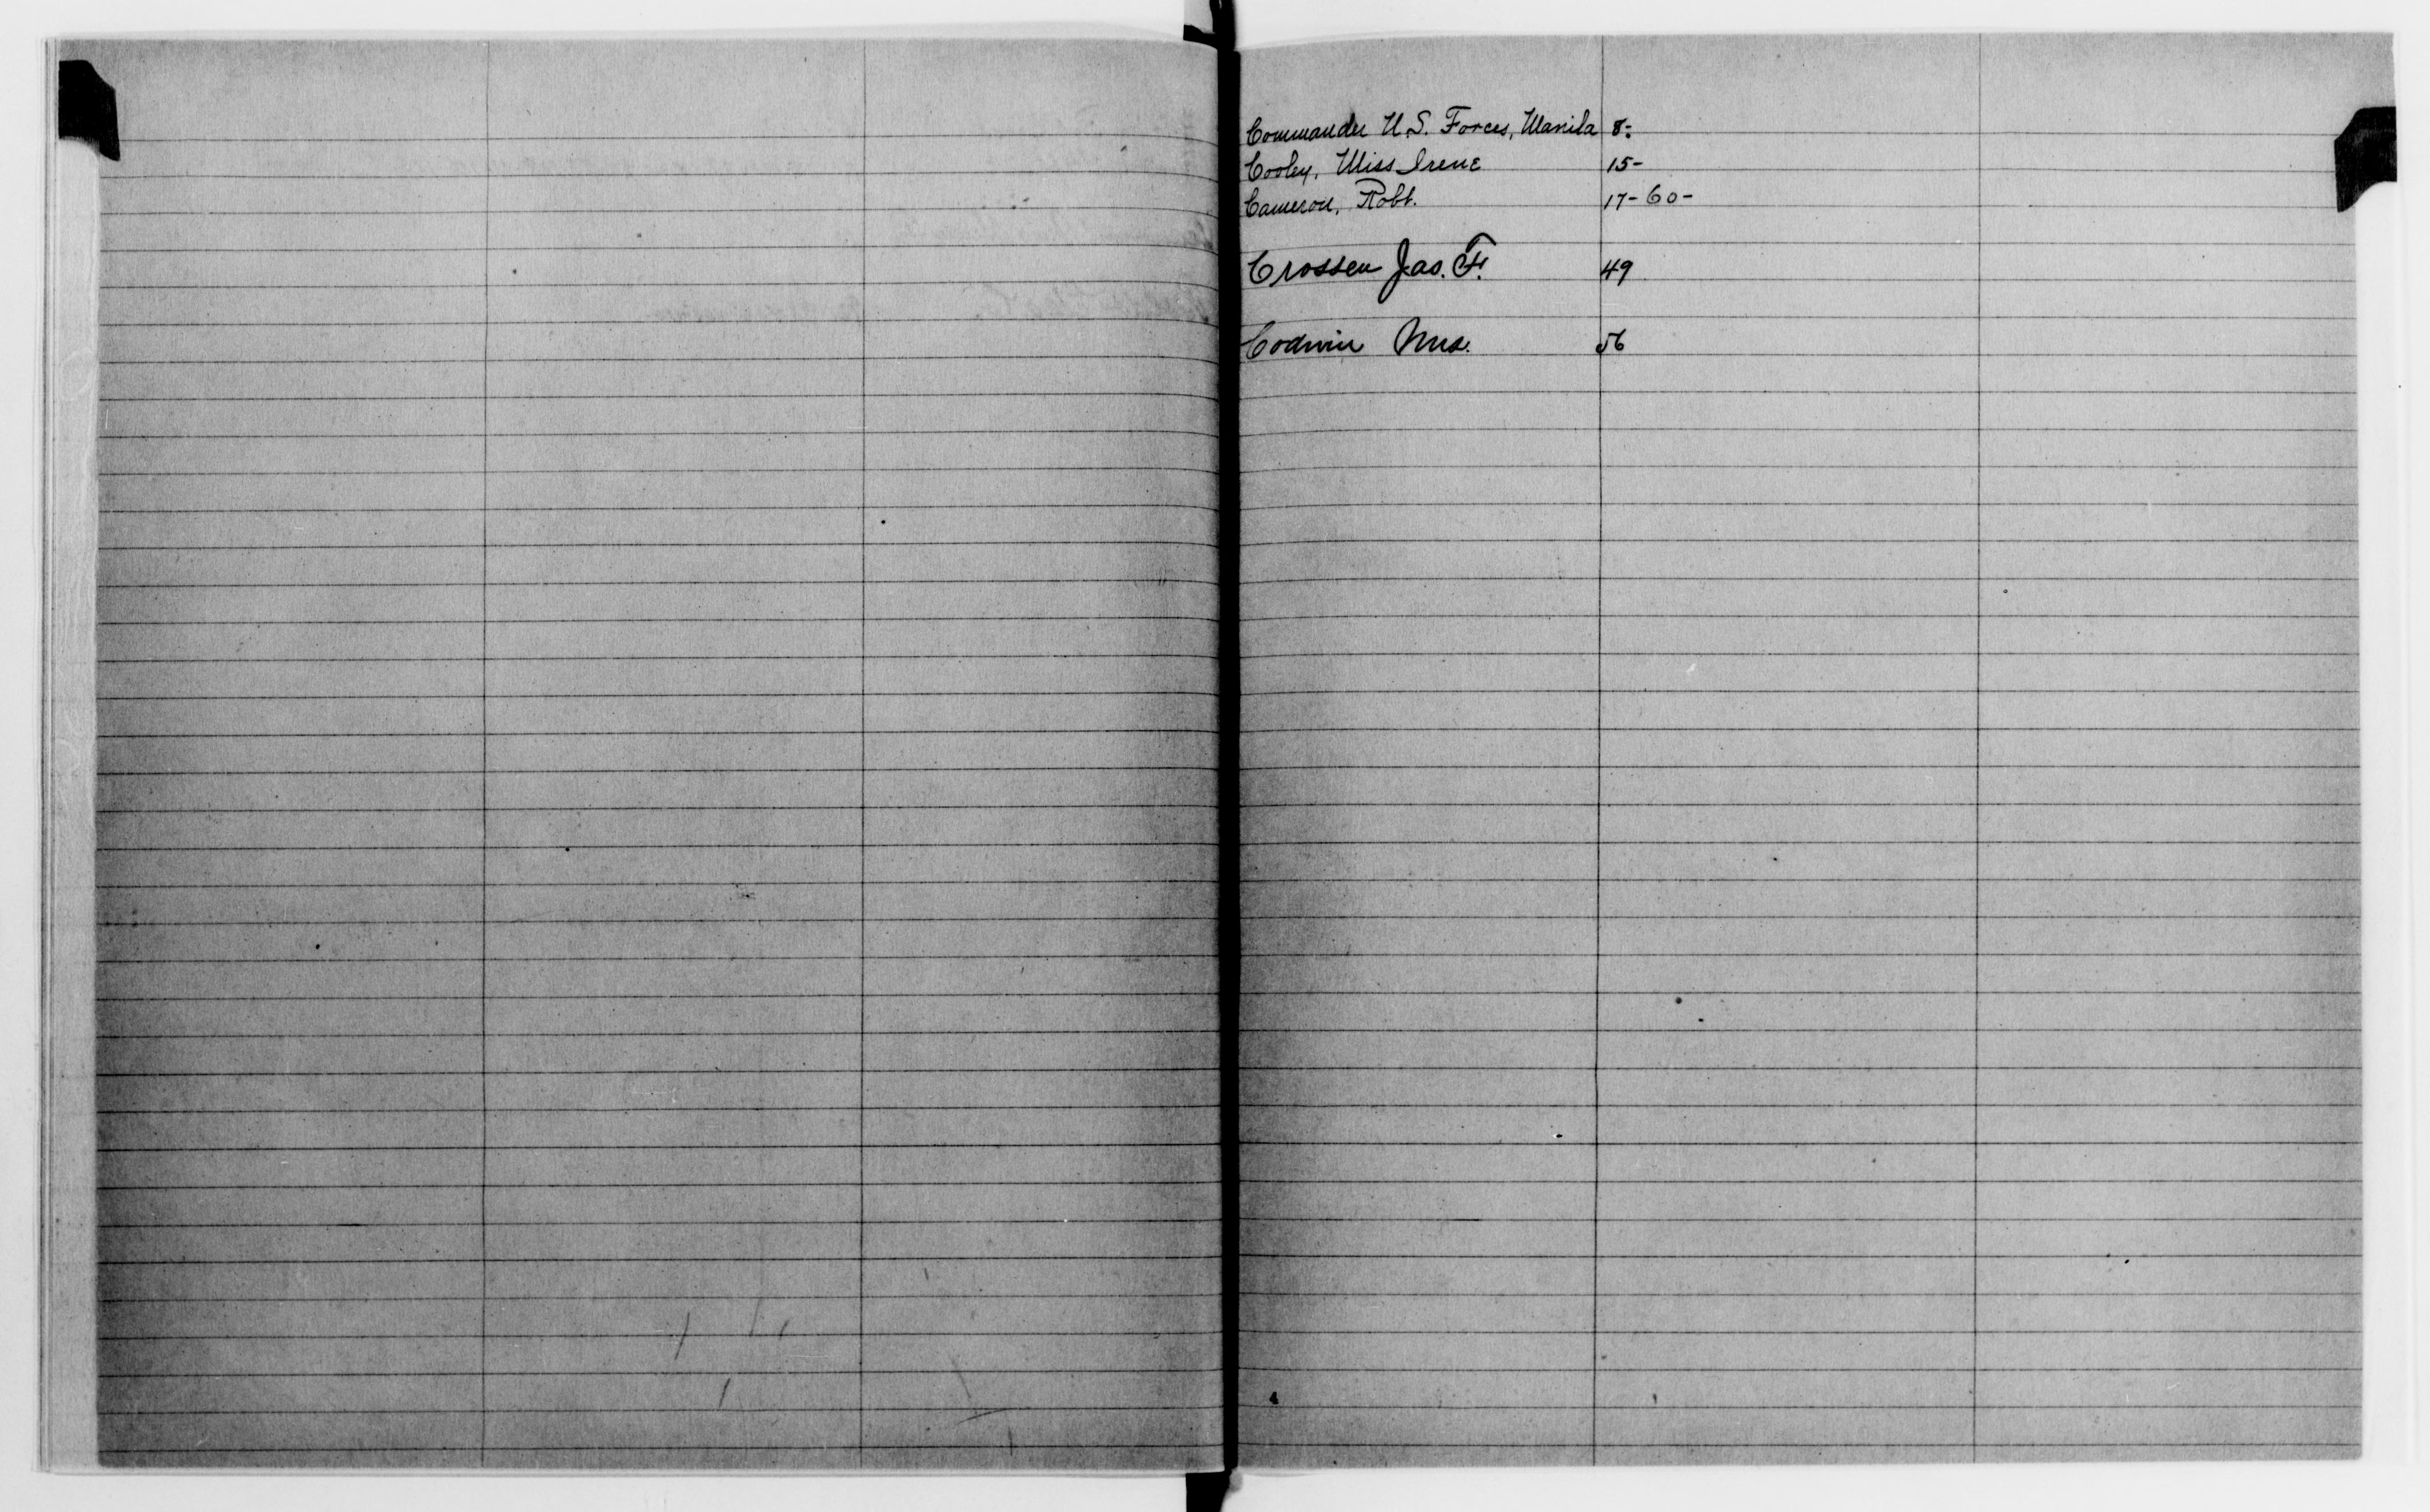 Commander U.S. Forces, Manila 8-
Cooley, Miss Irene 15-
Cameron, Robt. 17-60-
Crossen Jas. F. 49
Codwin Mrs. 56